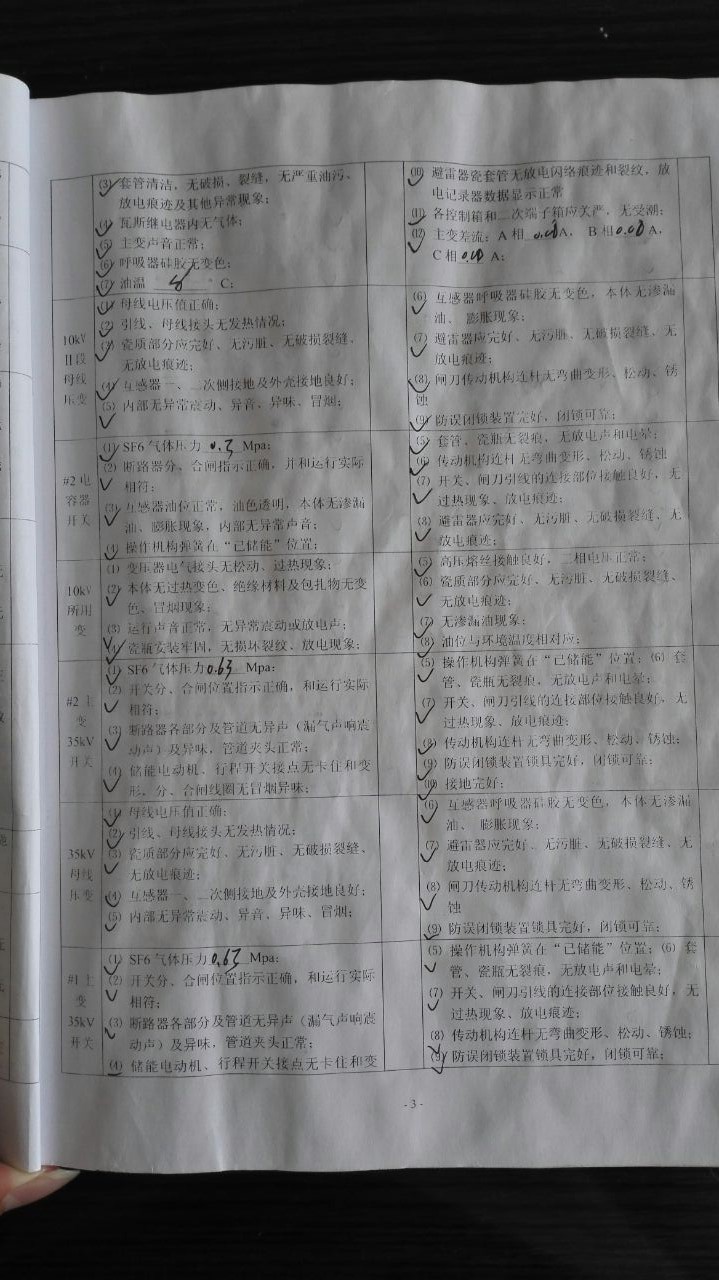 (3) 套管清洁，无破损、裂缝，无严重油污、
放电痕迹及其他异常现象；
(4) 瓦斯继电器内无气体；
(5) 主变声音正常；
(6) 呼吸器硅胶无变色；
(7) 油温 ° C；
(10) 避雷器瓷套管无放电闪络痕迹和裂纹，放
电记录器数据显示正常
(11) 各控制箱和二次端子箱应关严，无受潮；
(12) 主变差流：A 相 0.00 A， B 相 0.00 A，
C 相 0.00 A；
10kV
II 段
母线
压变
(1) 母线电压值正确；
(2) 引线、母线接头无发热情况；
(3) 瓷质部分应完好、无污脏、无破损裂缝、
无放电痕迹；
(4) 互感器一、二次侧接地及外壳接地良好；
(5) 内部无异常震动、异音、异味、冒烟；
(6) 互感器呼吸器硅胶无变色，本体无渗漏
油、 膨胀现象；
(7) 避雷器应完好、无污脏、无破损裂缝、无
放电痕迹；
(8) 闸刀传动机构连杆无弯曲变形、松动、锈
蚀
(9) 防误闭锁装置完好，闭锁可靠；
#2 电
容器
开关
(1) SF6 气体压力 0.5 Mpa；
(2) 断路器分、合闸指示正确，并和运行实际
相符；
(3) 互感器油位正常，油色透明，本体无渗漏
油、膨胀现象，内部无异常声音；
(4) 操作机构弹簧在“已储能”位置；
(5) 套管、瓷瓶无裂痕，无放电声和电晕；
(6) 传动机构连杆无弯曲变形、松动、锈蚀
(7) 开关、闸刀引线的连接部位接触良好，无
过热现象、放电痕迹；
(8) 避雷器应完好、无污脏、无破损裂缝、无
放电痕迹；
10kV
所用
变
(1) 变压器电气接头无松动、过热现象；
(2) 本体无过热变色、绝缘材料及包扎物无变
色、冒烟现象；
(3) 运行声音正常，无异常震动或放电声；
(4) 瓷瓶安装牢固，无损坏裂纹、放电现象；
(5) 高压熔丝接触良好，二相电压正常；
(6) 瓷质部分应完好、无污脏、无破损裂缝、
无放电痕迹；
(7) 无渗漏油现象；
(8) 油位与环境温度相对应；
#2 主
变
35kV
开关
(1) SF6 气体压力 0.63 Mpa；
(2) 开关分、合闸位置指示正确，和运行实际
相符；
(3) 断路器各部分及管道无异声（漏气声响震
动声）及异味，管道夹头正常；
(4) 储能电动机、行程开关接点无卡住和变
形，分、合闸线圈无冒烟异味；
(5) 操作机构弹簧在“已储能”位置；(6) 套
管、瓷瓶无裂痕，无放电声和电晕；
(7) 开关、闸刀引线的连接部位接触良好，无
过热现象、放电痕迹；
(8) 传动机构连杆无弯曲变形、松动、锈蚀；
(9) 防误闭锁装置锁具完好，闭锁可靠；
(10) 接地完好；
35kV
母线
压变
(1) 母线电压值正确；
(2) 引线、母线接头无发热情况；
(3) 瓷质部分应完好、无污脏、无破损裂缝、
无放电痕迹；
(4) 互感器一、二次侧接地及外壳接地良好；
(5) 内部无异常震动、异音、异味、冒烟；
(6) 互感器呼吸器硅胶无变色，本体无渗漏
油、 膨胀现象；
(7) 避雷器应完好、无污脏、无破损裂缝、无
放电痕迹；
(8) 闸刀传动机构连杆无弯曲变形、松动、锈
蚀
(9) 防误闭锁装置锁具完好，闭锁可靠；
#1 主
变
35kV
开关
(1) SF6 气体压力 0.63 Mpa；
(2) 开关分、合闸位置指示正确，和运行实际
相符；
(3) 断路器各部分及管道无异声（漏气声响震
动声）及异味，管道夹头正常；
(4) 储能电动机、行程开关接点无卡住和变
(5) 操作机构弹簧在“已储能”位置；(6) 套
管、瓷瓶无裂痕，无放电声和电晕；
(7) 开关、闸刀引线的连接部位接触良好，无
过热现象、放电痕迹；
(8) 传动机构连杆无弯曲变形、松动、锈蚀；
防误闭锁装置锁具完好，闭锁可靠；
- 3 -